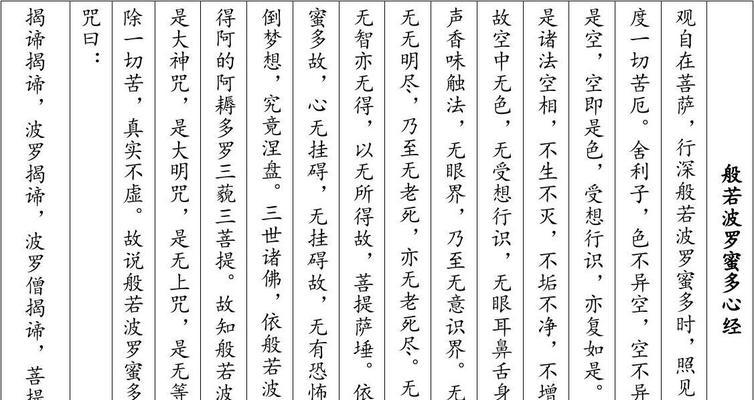 般若波罗蜜多心经
观自在菩萨，行深般若波罗蜜多时，照见
度一切苦厄。舍利子，色不异空，空不异
是空，空即是色，受想行识，亦复如是。
是诸法空相，不生不灭，不垢不净，不增
故空中无色，无受想行识，无眼耳鼻舌身
声香味触法，无眼界，乃至无意识界。无
无无明尽，乃至无老死，亦无老死尽。无
无智亦无得，以无所得故，菩提萨埵。依
蜜多故，心无挂碍，无挂碍故，无有恐怖
倒梦想，究竟涅盘。三世诸佛，依般若波
得阿的阿耨多罗三藐三菩提。故知般若波
是大神咒，是大明咒，是无上咒，是无等
除一切苦，真实不虚。故说般若波罗蜜多
咒曰：
揭谛揭谛，波罗揭谛，波罗僧揭谛，菩提